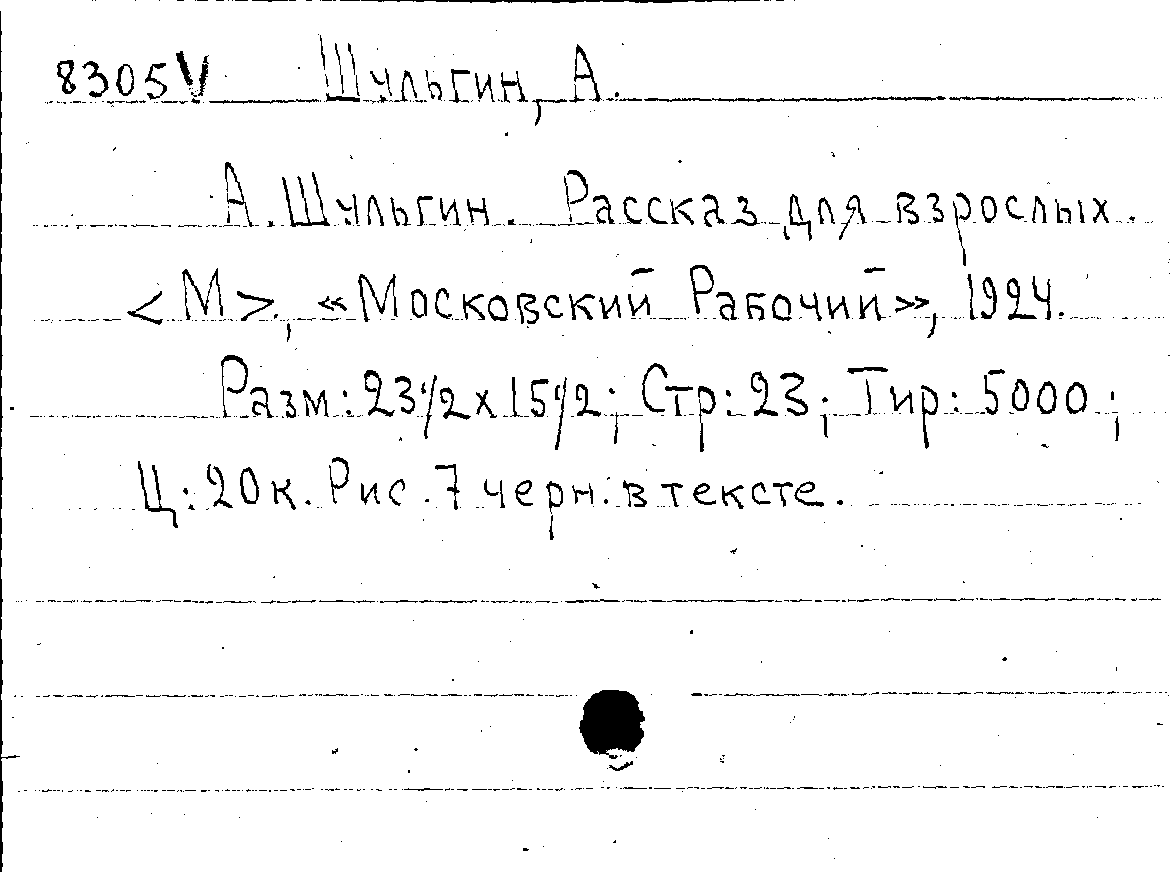 8305V Шульгин, А.
А. Шульгин. Рассказ для взрослых.
<М>, «Московский Рабочий», 1924.
Разм: 23 1/2 x 15 1/2; Стр: 23; Тир: 5000;
Ц: 20 к. Рис. 7 черн. в тексте.